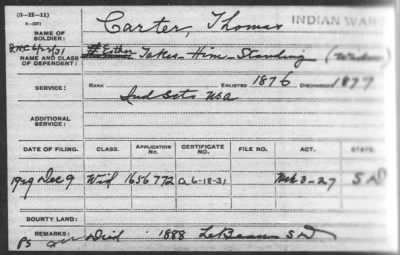 (3-II-11)
Carter, Thomas
INDIAN WAR
NAME OF SOLDIER:
NAME AND CLASS OF DEPENDENT:
Esther Takes-Him-Standing (Widow)
SERVICE:
RANK ENLISTED 1876 DISCHARGED 1877
Ind Scts USA
ADDITIONAL SERVICE:
DATE OF FILING. CLASS. APPLICATION No. CERTIFICATE No. FILE NO. ACT. STATE.
1929 Dec 9 Wid 1656772 a 6-18-31 Mch 3-27 S D
BOUNTY LAND:
REMARKS: Died 1888 LeBeau S D